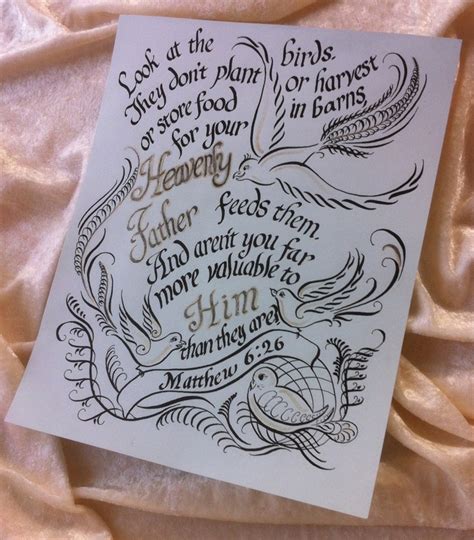 Look at the birds.
They don't plant or harvest
or store food in barns
for your
Heavenly
Father feeds them.
And aren't you far
more valuable to
Him
than they are
Matthew 6:26